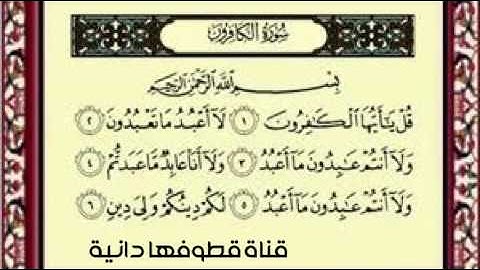 سُورَةُ الكَافِرُونَ
بِسْمِ اللَّهِ الرَّحْمَٰنِ الرَّحِيمِ
قُلْ يَٰٓأَيُّهَا ٱلْكَٰفِرُونَ ١ لَآ أَعْبُدُ مَا تَعْبُدُونَ ٢
وَلَآ أَنتُمْ عَٰبِدُونَ مَآ أَعْبُدُ ٣ وَلَآ أَنَا۠ عَابِدٌ مَّا عَبَدتُّمْ ٤
وَلَآ أَنتُمْ عَٰبِدُونَ مَآ أَعْبُدُ ٥ لَكُمْ دِينُكُمْ وَلِىَ دِينِ ٦
قناة قطوفها دانية